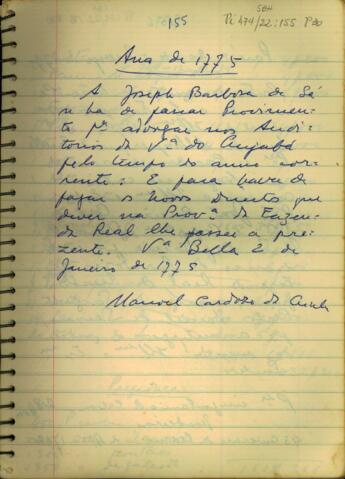 155
504
Pi 474/22:155 P20
Ano de 1775
A Joseph Barbosa de Sá
se ha de passar Provimen-
to pª advogar nos Audi-
torios da Vª do Cuyabá
pelo tempo do anno cor-
rente: E para haver de
pagar os Novos Direitos que
dever na Provª da Fazen-
da Real lhe passei a pre-
zente. Vª Bella 2 de
Janeiro de 1775
Manoel Cardozo da Cunha